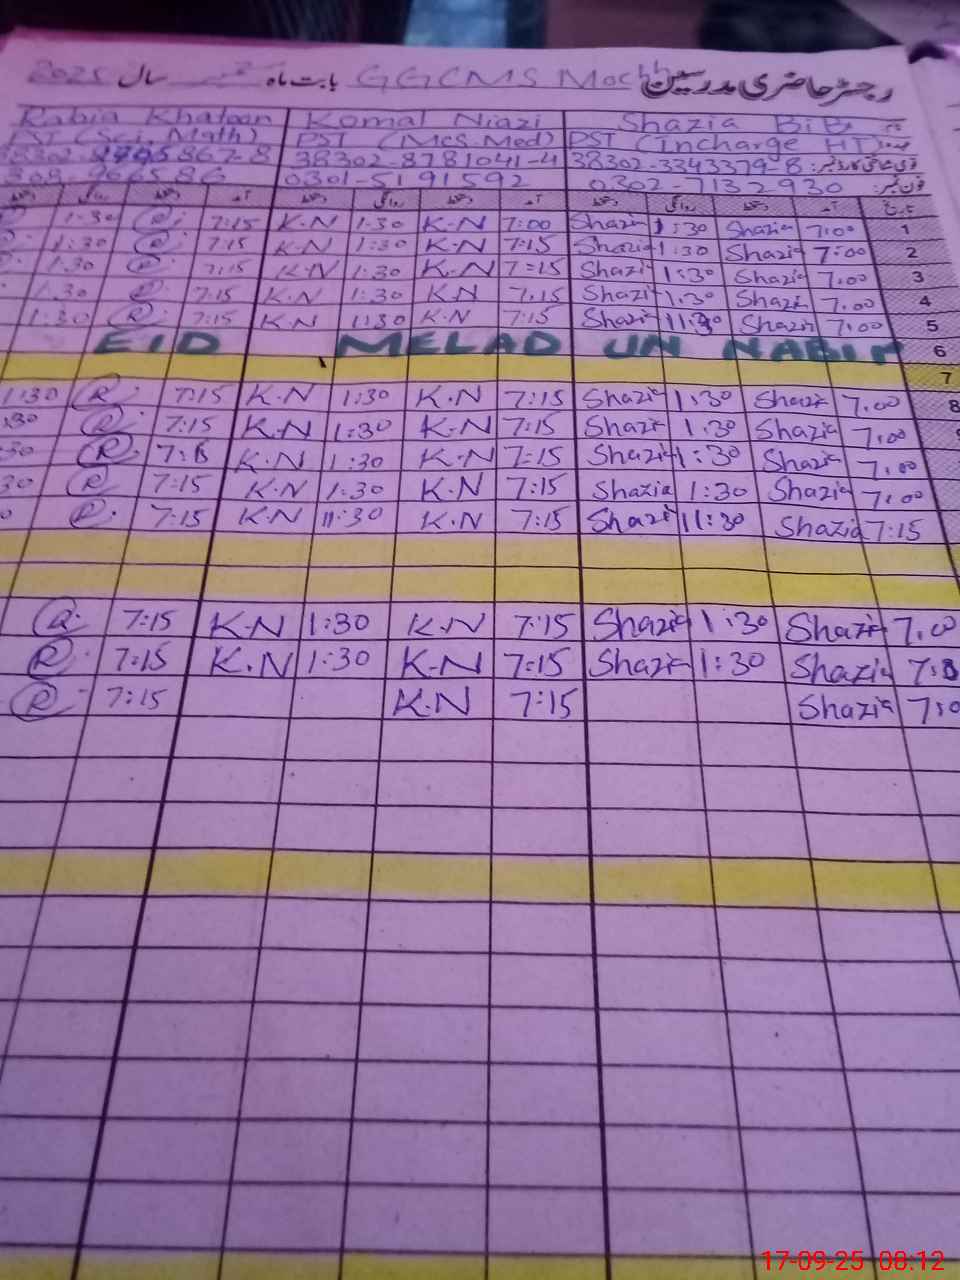 رجسٹر حاضری مدرسین GGCMS Moch بابت ماہ سال 2025
Rabia Khatoon Komal Niazi Shazia BiBi
(Sci.Math) PST (Mcs.Med) PST (Incharge HT)
38302-8781041-4 38302-3343379-8
0301-5191592 0302-7132930
تاریخ آمد دستخط روانگی دستخط آمد دستخط روانگی دستخط آمد دستخط روانگی
1:30 R. 7:15 K.N 1:30 K.N 7:00 Shazia 1:30 Shazia 7:00 1
1:30 R. 7:15 K.N 1:30 K.N 7:15 Shazia 1:30 Shazia 7:00 2
1:30 R. 7:15 K.N 1:30 K.N 7:15 Shazia 1:30 Shazia 7.00 3
1:30 R. 7:15 K.N 1:30 K.N 7.15 Shazia 1:30 Shazia 7.00 4
1:30 R. 7:15 K.N 11:30 K.N 7:15 Shazia 11:30 Shazia 7:00 5
EID MELAD UN NABI 6
7
1:30 R. 7:15 K.N 1:30 K.N 7:15 Shazia 1:30 Shazia 7.00 8
:30 R. 7:15 K.N 1:30 K.N 7:15 Shazia 1:30 Shazia 7:00
30 R. K.N 1:30 K.N 7:15 Shazia 1:30 Shazia 7:00
30 R. 7:15 K.N 1:30 K.N 7:15 Shazia 1:30 Shazia 7:00
0 R. 7:15 K.N 11:30 K.N 7:15 Shazia 11:30 Shazia 7:15
R. 7:15 K.N 1:30 K.N 7:15 Shazia 1:30 Shazia 7.00
R. 7:15 K.N 1:30 K.N 7:15 Shazia 1:30 Shazia
R. 7:15 K.N 7:15 Shazia 7:0
17-09-25 08:12